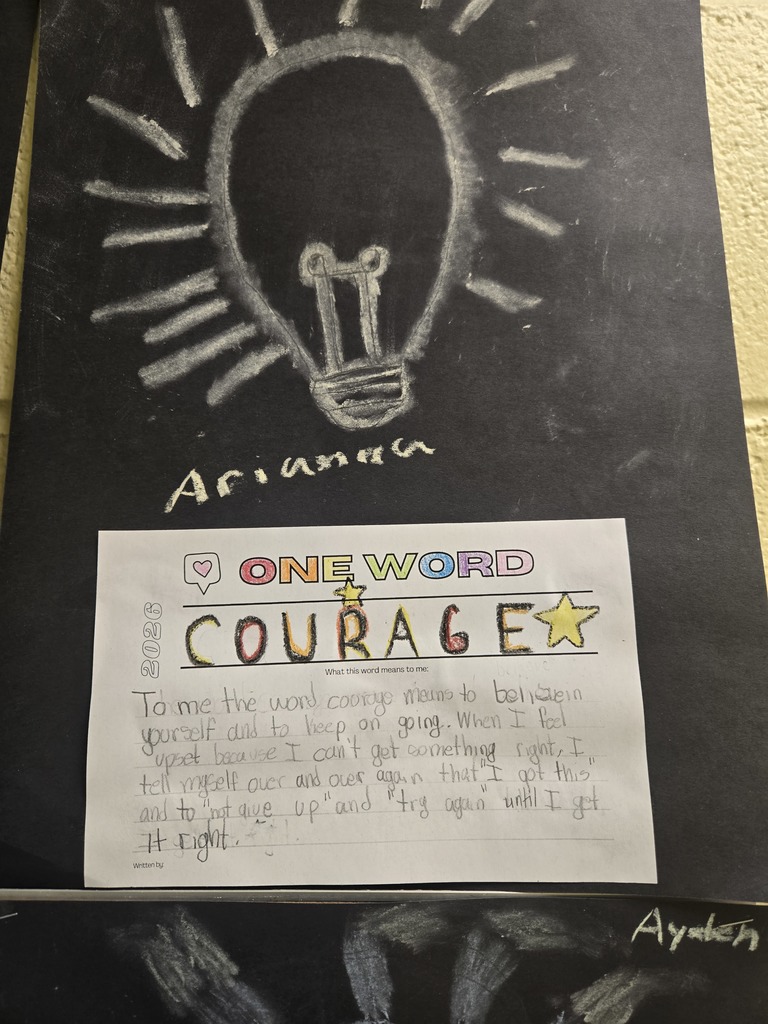 Arianna
ONE WORD
2026
COURAGE
What this word means to me:
To me the word courage means to believe in
yourself and to keep on going. When I feel
upset because I can't get something right, I
tell myself over and over again that "I got this"
and to "not give up" and "try again" until I get
it right.
Written by:
Ayden